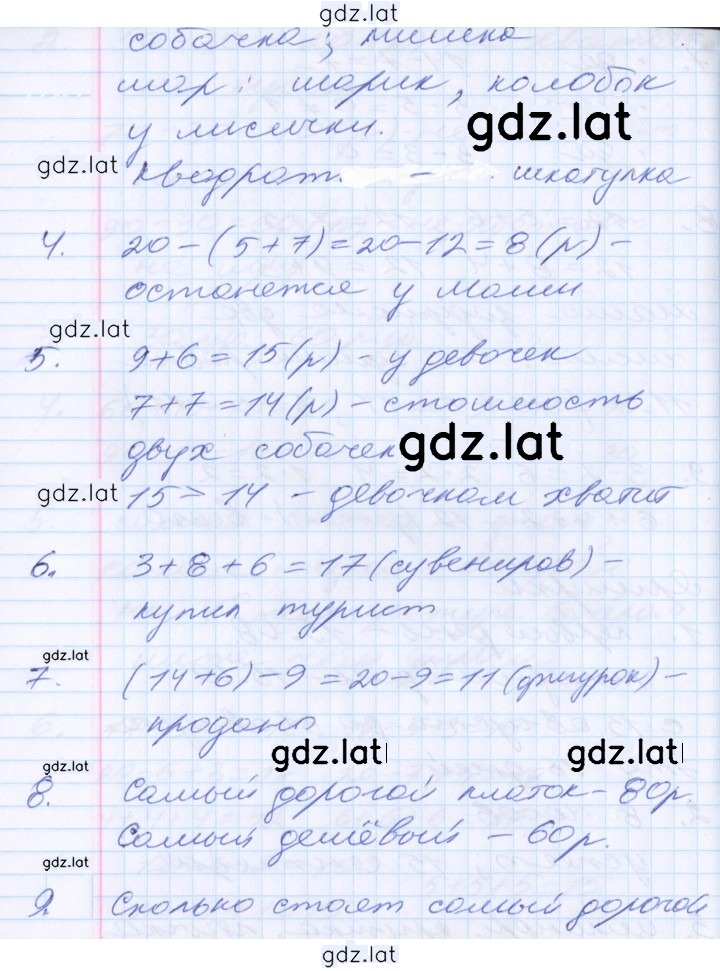 gdz.lat
собачка; мишка
шар: шарик, колобок
у лисички. gdz.lat
gdz.lat квадрат. - шкатулка
4. 20-(5+7)=20-12=8(р)-
останется у Маши
gdz.lat
5. 9+6=15(р)-у девочек
7+7=14(р)-стоимость
двух собачек gdz.lat
gdz.lat 15>14 - девочкам хватит
6. 3+8+6=17(сувениров)-
купил турист
gdz.lat
7. (14+6)-9=20-9=11(фигурок)-
продано
gdz.lat gdz.lat
gdz.lat
8. Самый дорогой платок-80р.
Самый дешёвый - 60р.
gdz.lat
9. Сколько стоят самый дорогой
gdz.lat